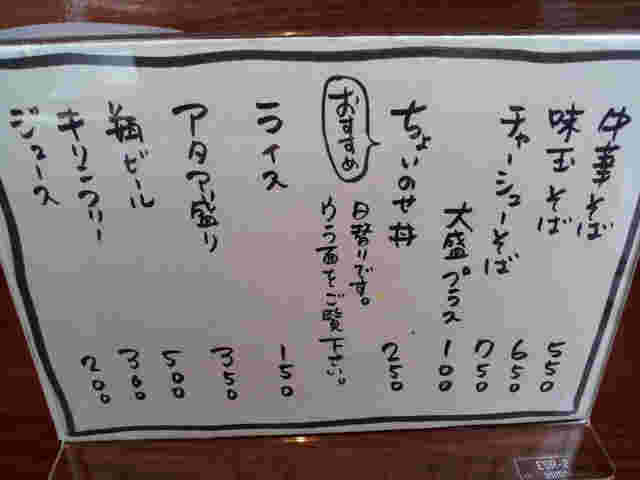 中華そば 550
味玉そば 650
チャーシューそば 750
大盛プラス 100
ちょいのせ丼 250
おすすめ
日替りです。
ウラ面をご覧下さい。
ライス 150
アタマ盛り 350
瓶ビール 500
キリンフリー 300
ジュース 200